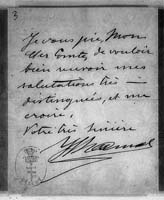 3
Je vous prie, Mon
cher Comte, de vouloir
bien recevoir mes
salutations très
distinguées, et me
croire,
Votre très sincère